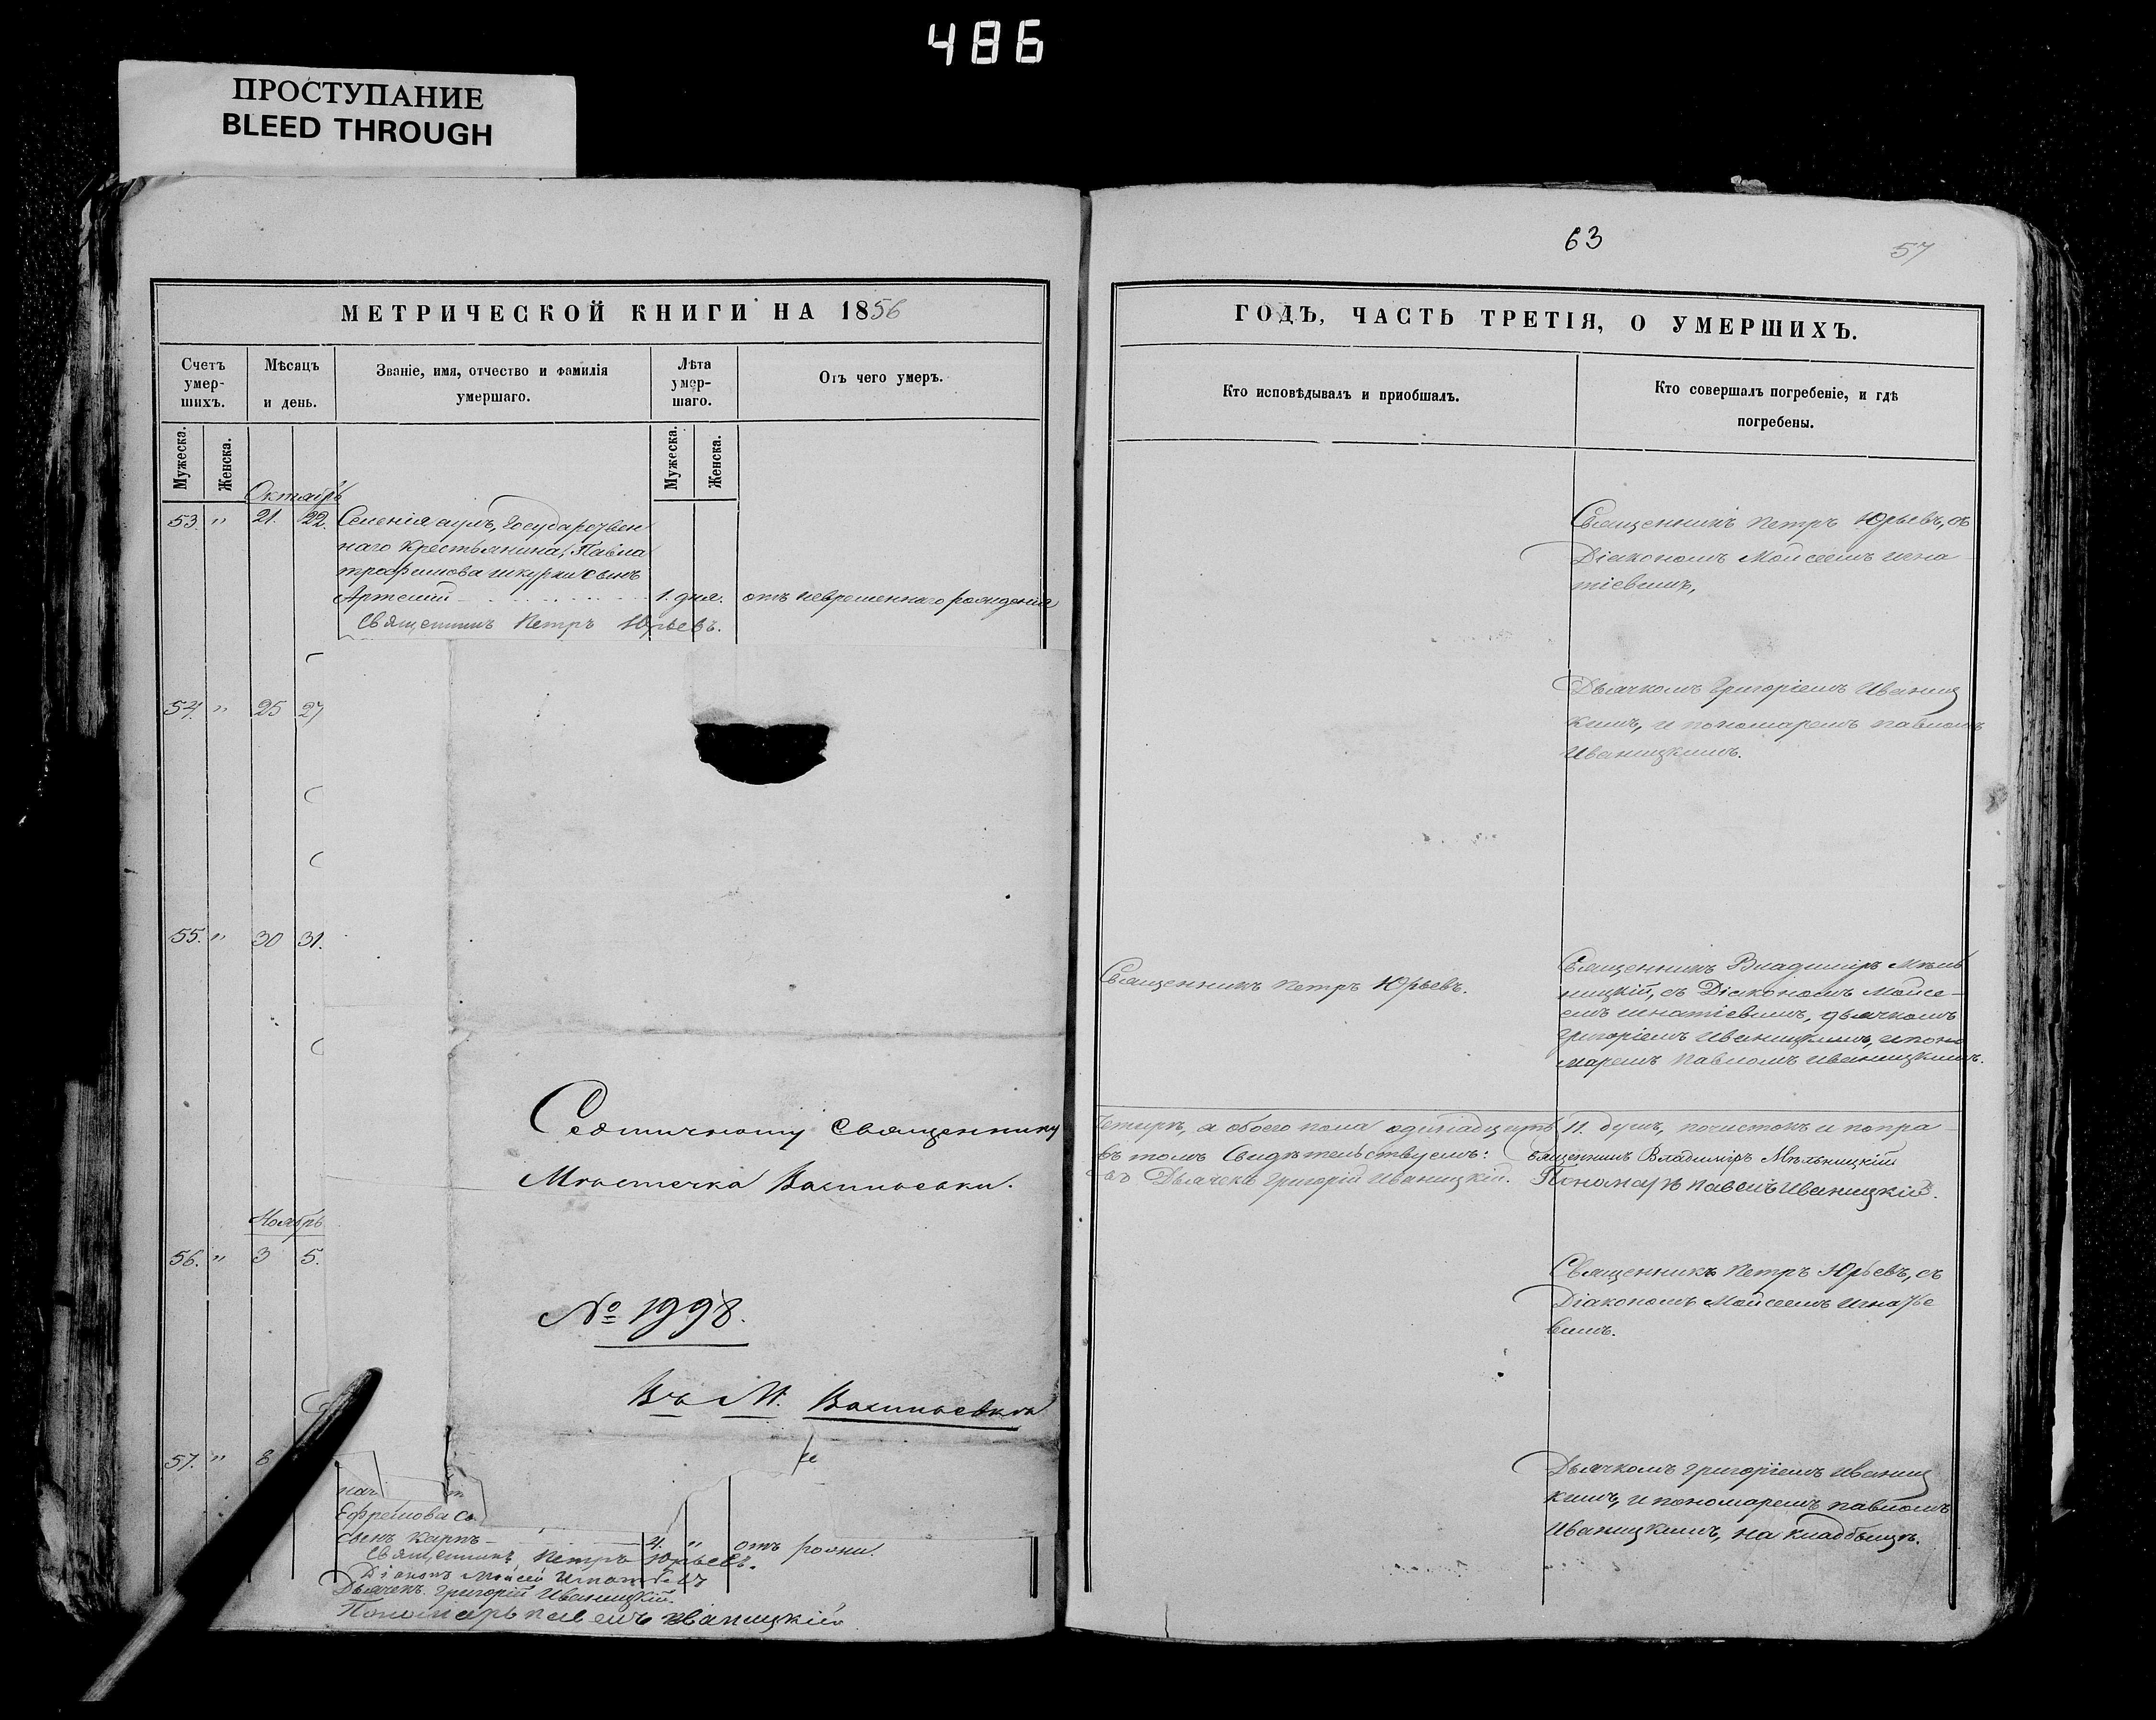 486
ПРОСТУПАНИЕ
BLEED THROUGH
МЕТРИЧЕСКОЙ КНИГИ НА 1856
Счетъ умер-шихъ.
Мѣсяцъ и день.
Званіе, имя, отчество и фамилія умершаго.
Лѣта умер-шаго.
Отъ чего умеръ.
Мужеска.
Женска.
Мужеска.
Женска.
Октябрь
53 " 21. 22. Селенія Государствен
наго крестьянина, Павла
трофимова сынъ
Артемій 1. дня. отъ невременнаго рожденія
Священникъ Петръ Юрьевъ.
54. " 25 27
55. " 30 31.
Священнику
Мѣстечка
Ноябрь
56. " 3 5.
№ 1998.
Въ М.
57. " 8
Ефремова
сынъ Карпъ 4. " отъ
Священникъ Петръ Юрьевъ.
Діаконъ Моисей
Дьячекъ Григорій Иваницкій
Пономарь павелъ иваницкій
63
57
ГОДЪ, ЧАСТЬ ТРЕТІЯ, О УМЕРШИХЪ.
Кто исповѣдывалъ и пріобщалъ.
Кто совершалъ погребеніе, и гдѣ
погребены.
Священникъ Петръ Юрьевъ, съ
Діакономъ Моисеемъ игна
тіевимъ,
Дьячкомъ Григоріемъ Иваниц
кимъ, и пономаремъ павломъ
Иваницкимъ.
Священникъ Петръ Юрьевъ.
Священникъ Владиміръ Мѣль
ницкій, съ Діакономъ Моисе-
емъ игнатіевимъ, дьячкомъ
Григоріемъ Иваницкимъ, и поно
маремъ павломъ иваницкимъ.
четыре, а обоего пола одинадцать 11. душъ,
въ томъ Свидѣтельствуемъ: Священникъ Владиміръ Мѣльницкій
Дьячекъ Григорій Иваницкій. Пономарь павелъ Иваницкій.
Священникъ Петръ Юрьевъ, съ
Діакономъ Моисеемъ игнатье
вимъ.
Дьячкомъ григоріемъ иваниц
кимъ, и пономаремъ павломъ
Иваницкимъ, на кладбищѣ.